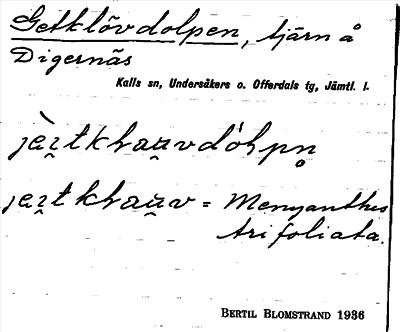 Getklövdolpen, tjärn å
Digernäs
Kalls sn, Undersåkers o. Offerdals tg, Jämtl. l.
jèi̯tkhau̯vdóhpn̥
jei̯tkhau̯v = Menyanthes
trifoliata.
BERTIL BLOMSTRAND 1936